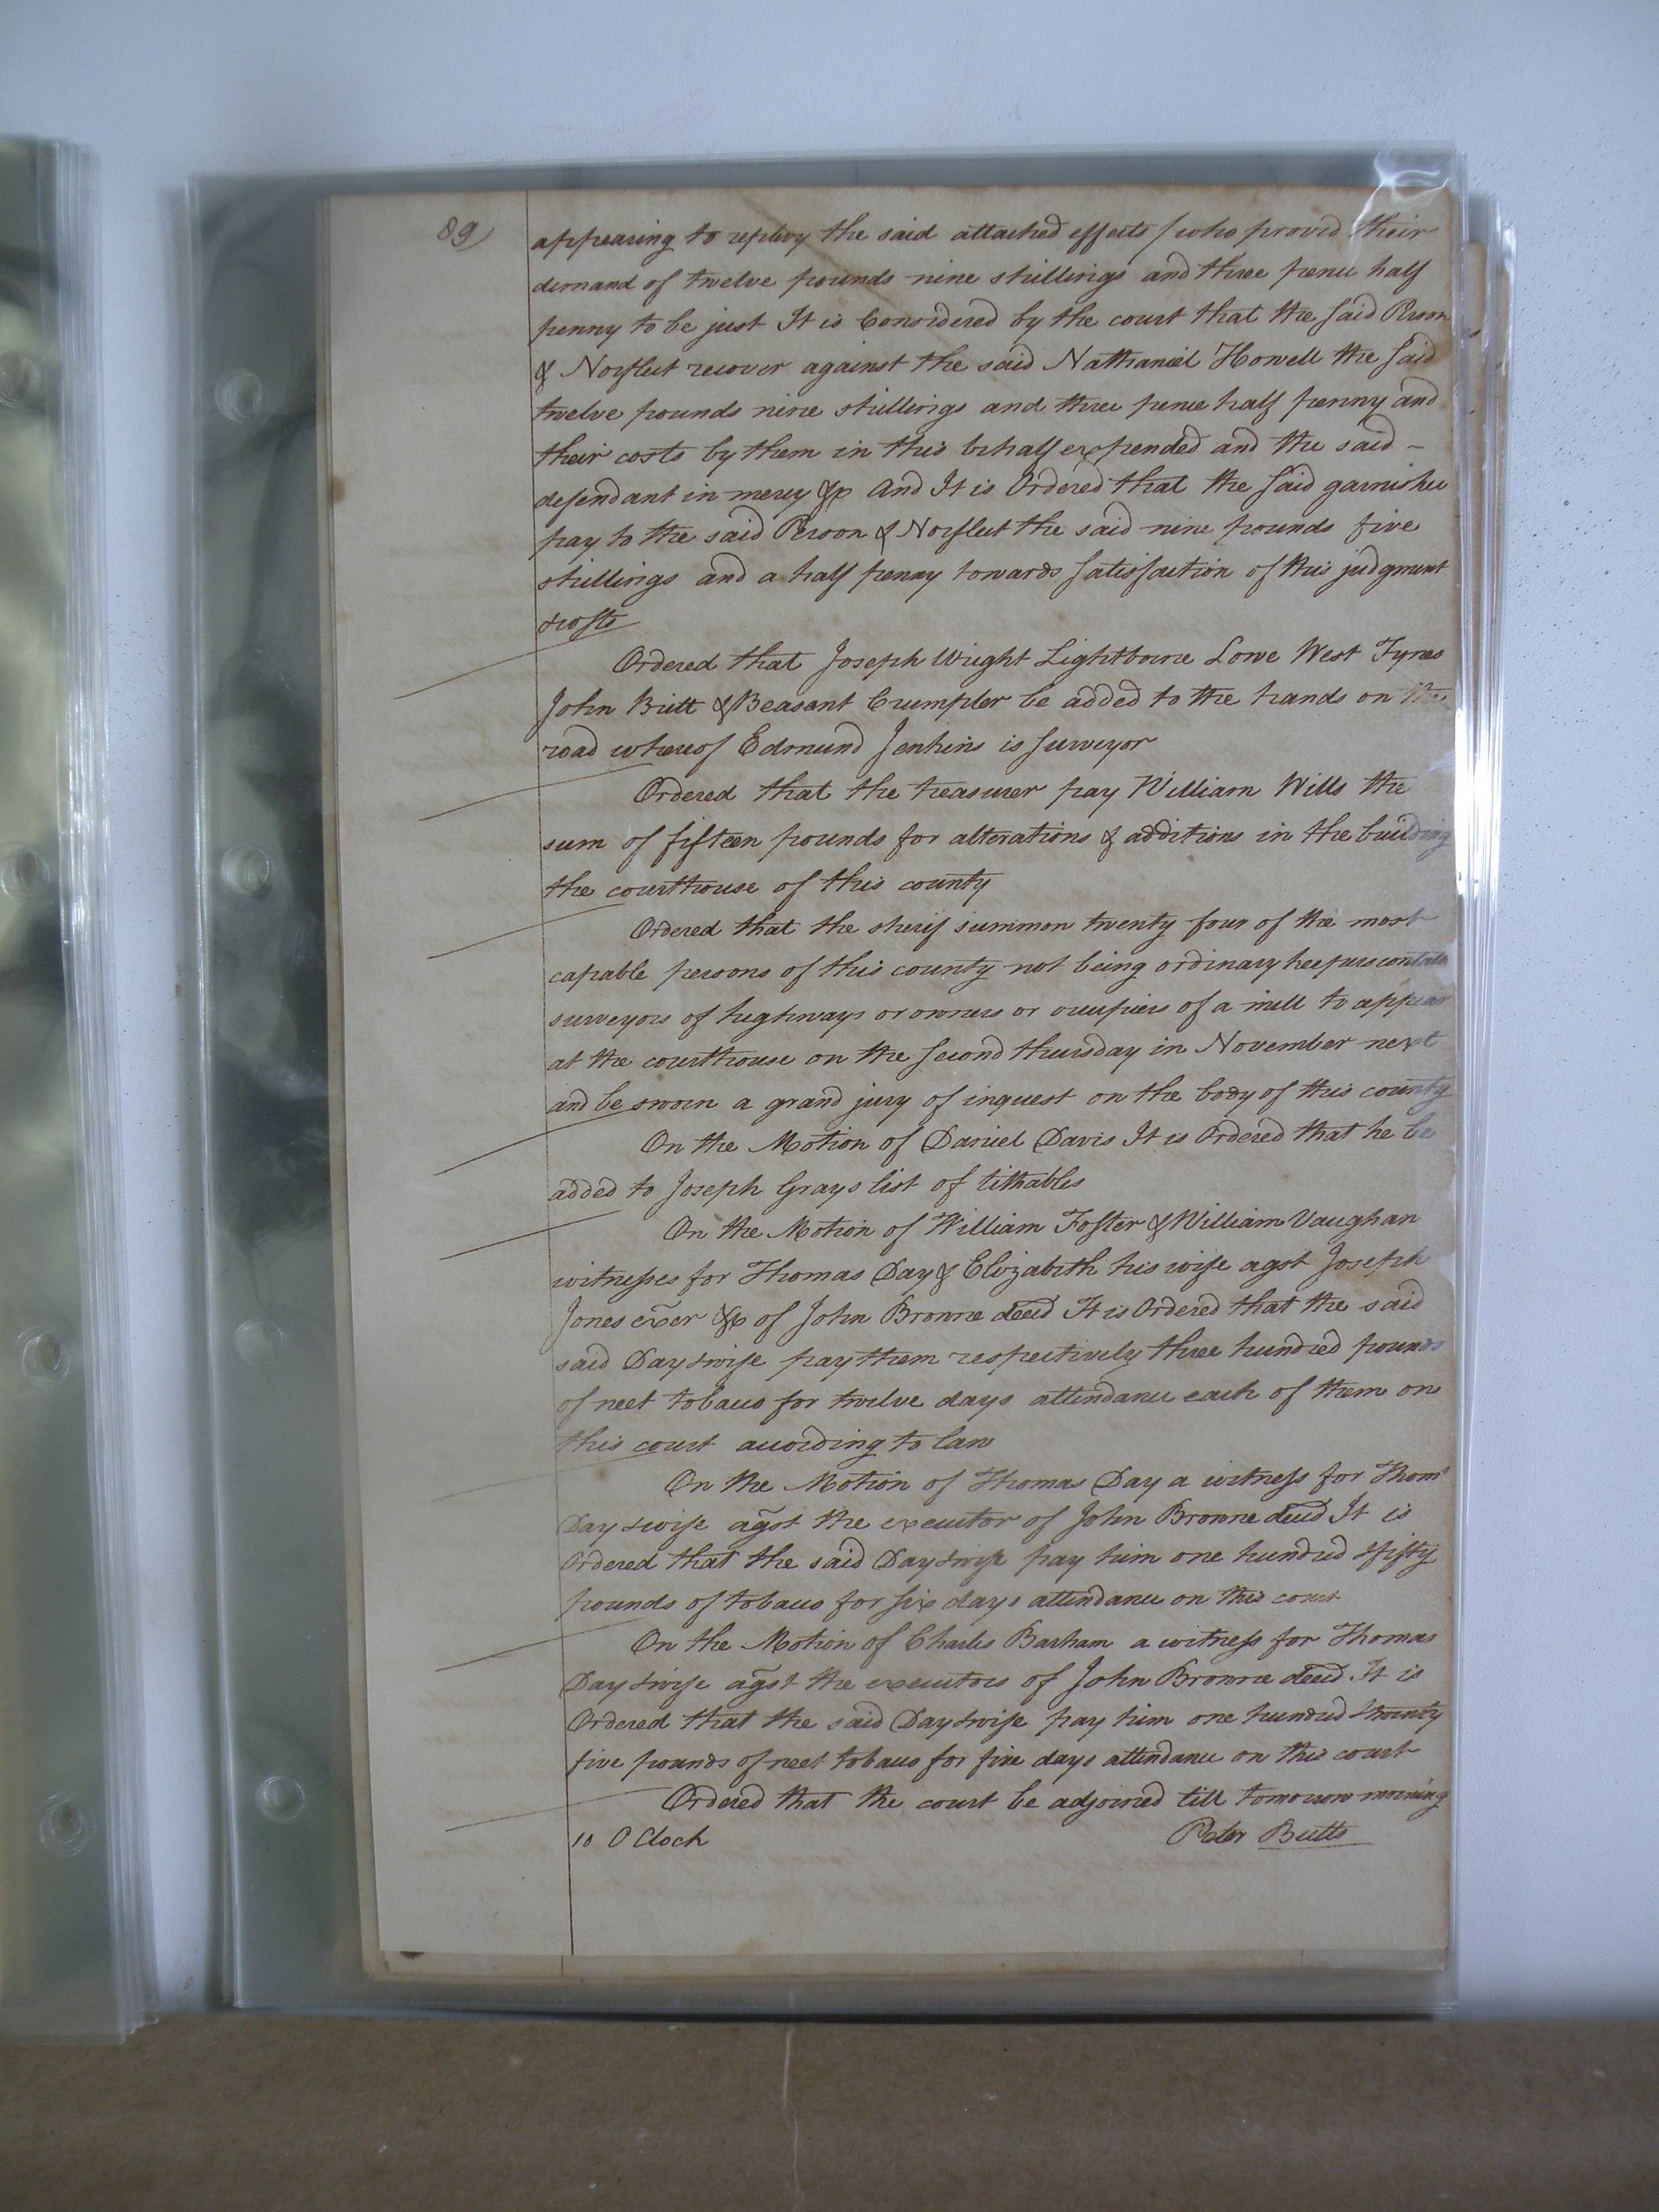 89
appearing to replevy the said attached effects / who proved their
demand of twelve pounds nine shillings and three pence half
penny to be just It is Considered by the court that the said Person
& Norfleet recover against the said Nathaniel Howell the said
twelve pounds nine shillings and three pence half penny and
their costs by them in this behalf expended and the said –
defendant in mercy &c And It is Ordered that the said garnishee
pay to the said Person & Norfleet the said nine pounds five
shillings and a half penny towards satisfaction of this judgment
& costs
Ordered that Joseph Wright Lightborne Lowe West Tynes
John Britt & Beasant Crumpler be added to the hands on the
road whereof Edmund Jenkins is surveyor
Ordered that the treasurer pay William Wills the
sum of fifteen pounds for alterations & additions in the building
the courthouse of this county
Ordered that the sherif summon twenty four of the most
capable persons of this county not being ordinary keepers constables
surveyors of highways or owners or occupiers of a mill to appear
at the courthouse on the second thursday in November next
and be sworn a grand jury of inquest on the body of this county
On the Motion of Daniel Davis It is Ordered that he be
added to Joseph Grays list of tithables
On the Motion of William Foster & William Vaughan
witnesses for Thomas Day & Elizabeth his wife agst Joseph
Jones exer &c of John Browne decd It is Ordered that the said
said Day & wife pay them respectively three hundred pounds
of neet tobacco for twelve days attendance each of them on
this court according to law
On the Motion of Thomas Day a witness for Thoms
Day & wife agst the executor of John Browne decd It is
Ordered that the said Day & wife pay him one hundred & fifty
pounds of tobacco for six days attendance on this court
On the Motion of Charles Barham a witness for Thomas
Day & wife agst the executors of John Browne decd It is
Ordered that the said Day & wife pay him one hundred & twenty
five pounds of neet tobacco for five days attendance on this court
Ordered that the court be adjorned till tomorrow morning
10 O Clock Peter Butts